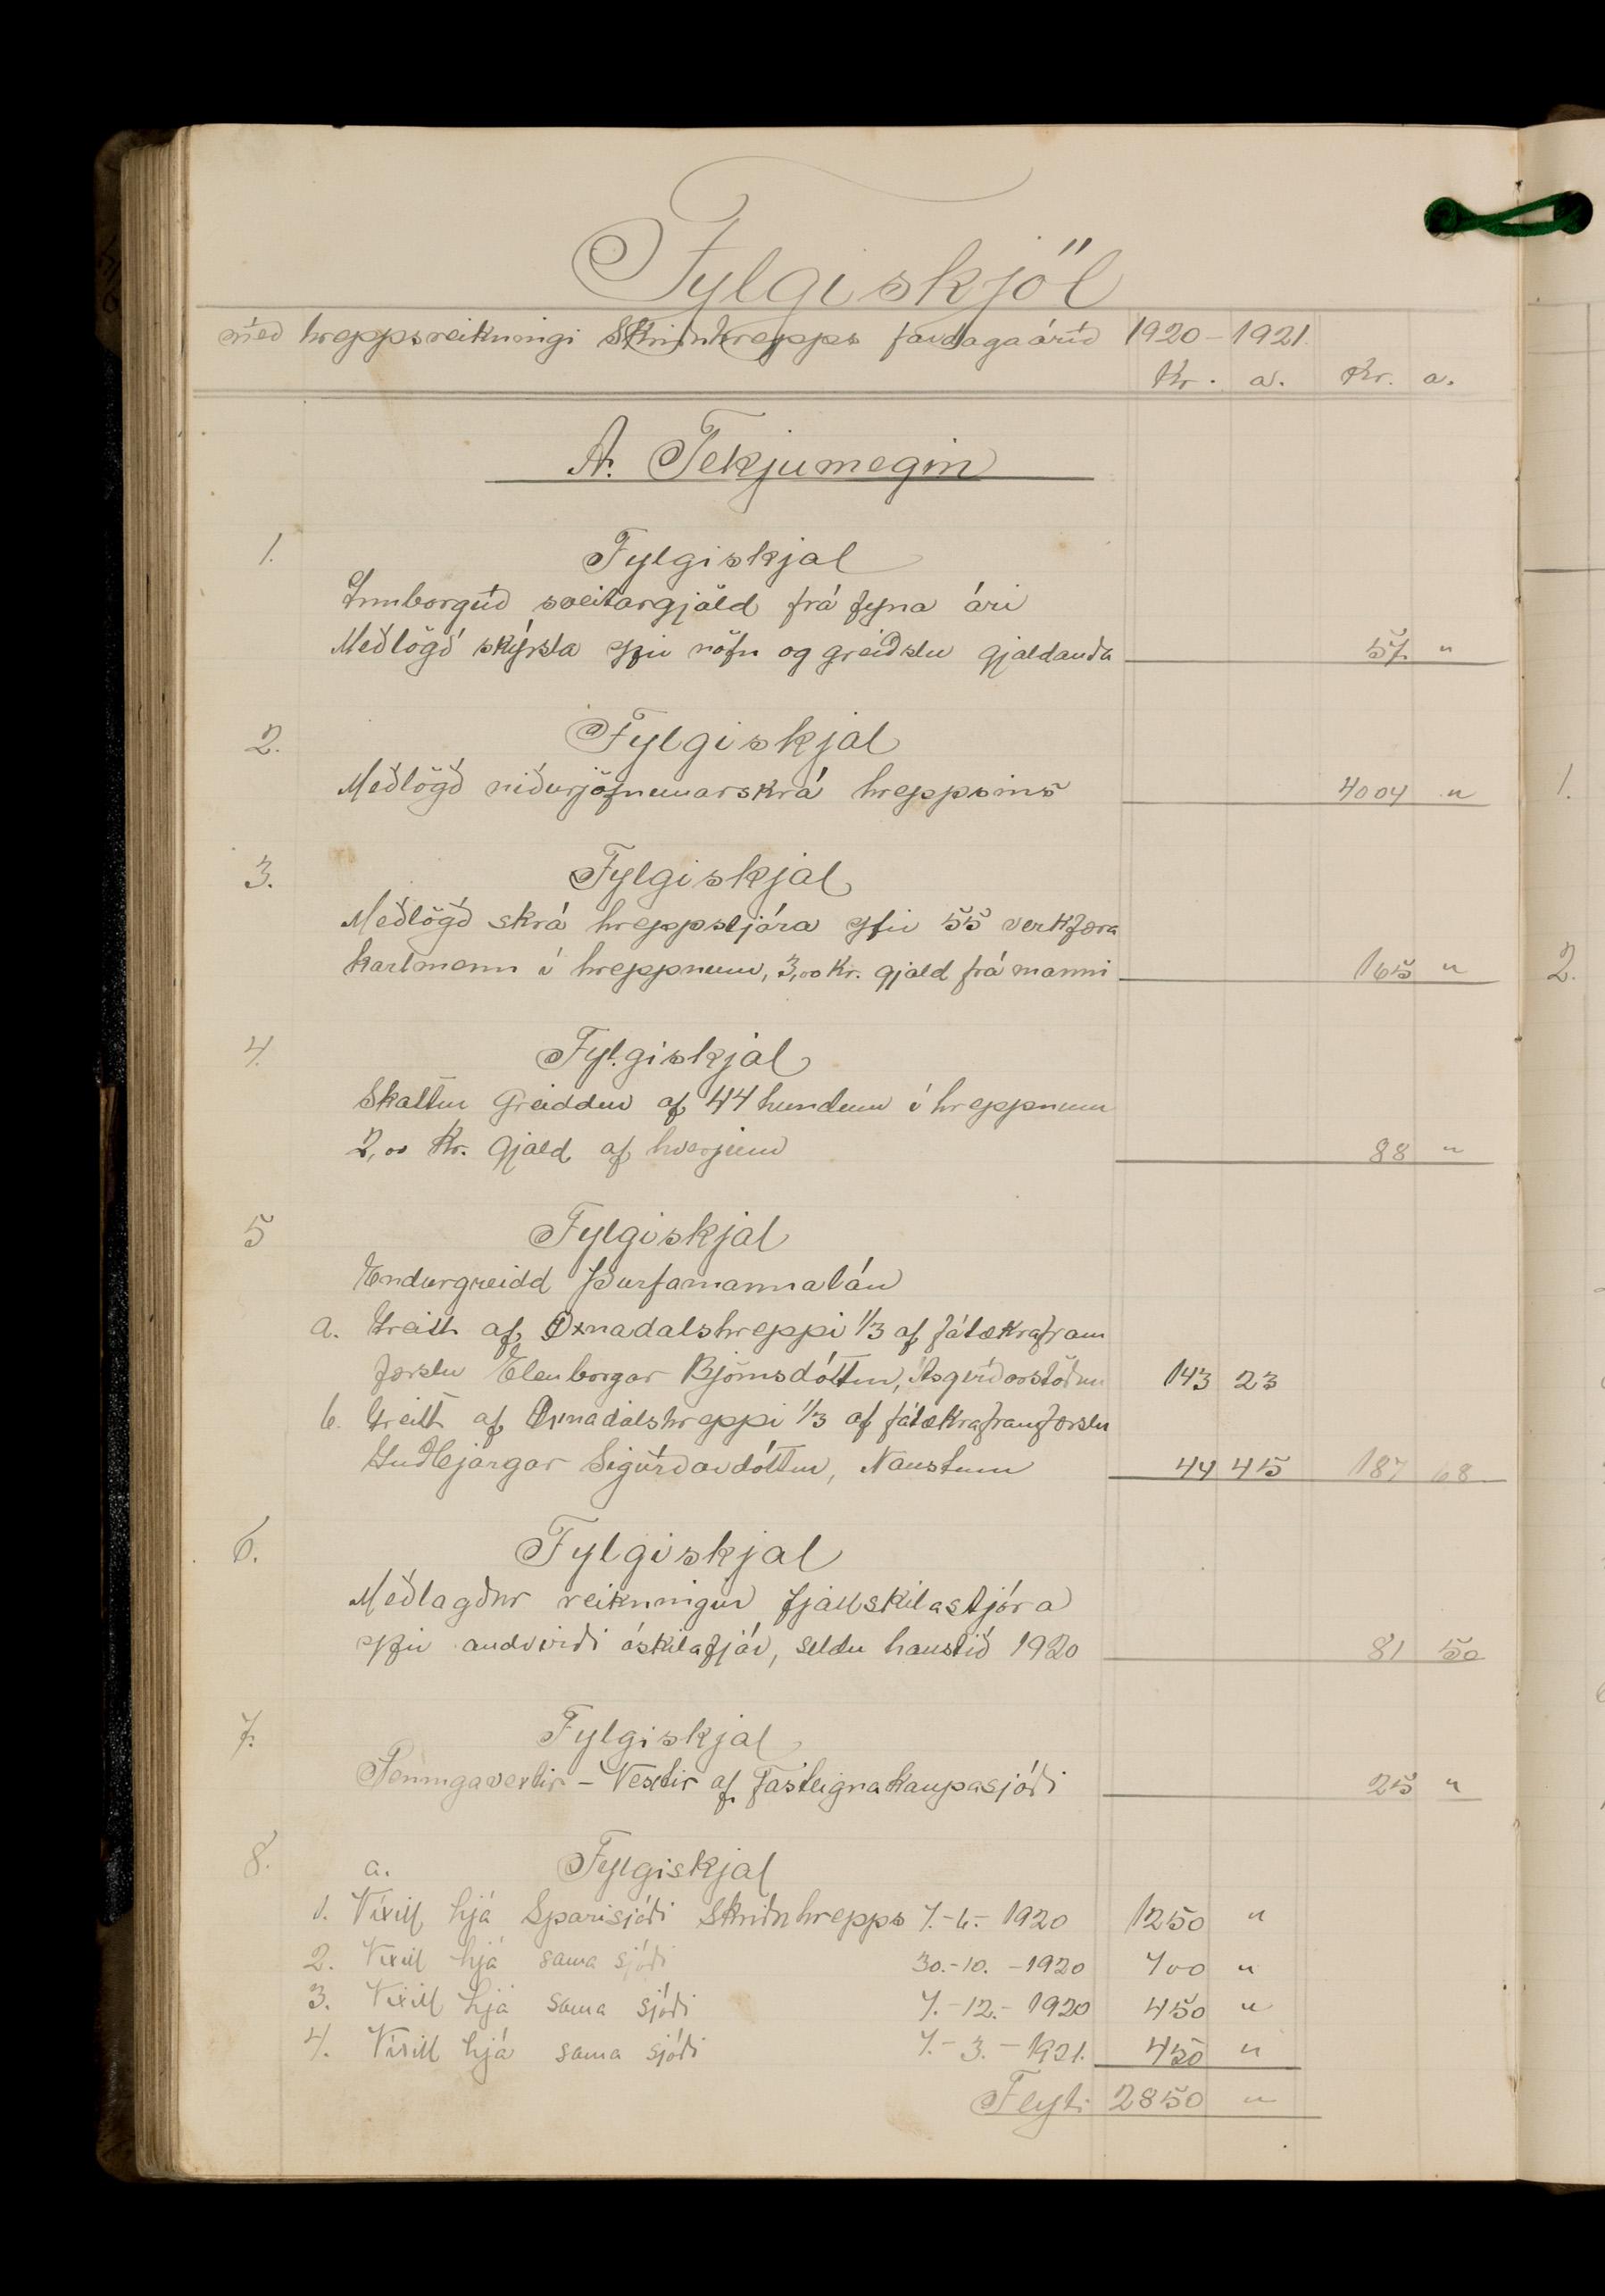 Fylgiskjöl
með hreppsreikningi Skriðuhrepps fardagaárið 1920-1921.
Kr. a. Kr. a.
A. Tekjumegin
1. Fylgiskjal
Innborguð sveitargjöld frá fyrra ári
Meðlögð skýrsla yfir nöfn og greiðslu gjaldanda 57 "
2. Fylgiskjal
Meðlögð niðurjöfnunarskrá hreppsins 4004 "
3. Fylgiskjal
Meðlögð skrá hreppstjóra yfir 55 verkfæra
karlmenn í hreppnum, 3,00 Kr. gjald frá manni 165 "
4. Fylgiskjal
Skattur greiddur af 44 hundum í hreppnum
2,00 Kr. gjald af hverjum 88 "
5 Fylgiskjal
Endurgreidd þurfamannalán
a. Greitt af Öxnadalshreppi 1/3 af fátækrafram
færslu Elenborgar Björnsdóttur, Ásgerðarstöðum 143 23
b. Greitt af Öxnadalshreppi 1/3 af fátækraframfærslu
Guðbjargar Sigurðardóttur, Naustum 44 45 187 68
6. Fylgiskjal
Meðlagður reikningur fjallskilastjóra
yfir andvirði óskilafjár, seldu haustið 1920 81 50
7. Fylgiskjal
Peningavextir - Vextir af Fasteignakaupasjóði 25 "
8. a. Fylgiskjal
1. Víxill hjá Sparisjóði Skriðuhrepps 7.-6.- 1920 1250 "
2. Víxill hjá sama sjóði 30.-10.-1920 700 "
3. Víxill hjá sama sjóði 7.-12.- 1920 450 "
4. Víxill hjá sama sjóði 7.-3.-1921. 450 "
Flyt: 2850 "
1.
2.